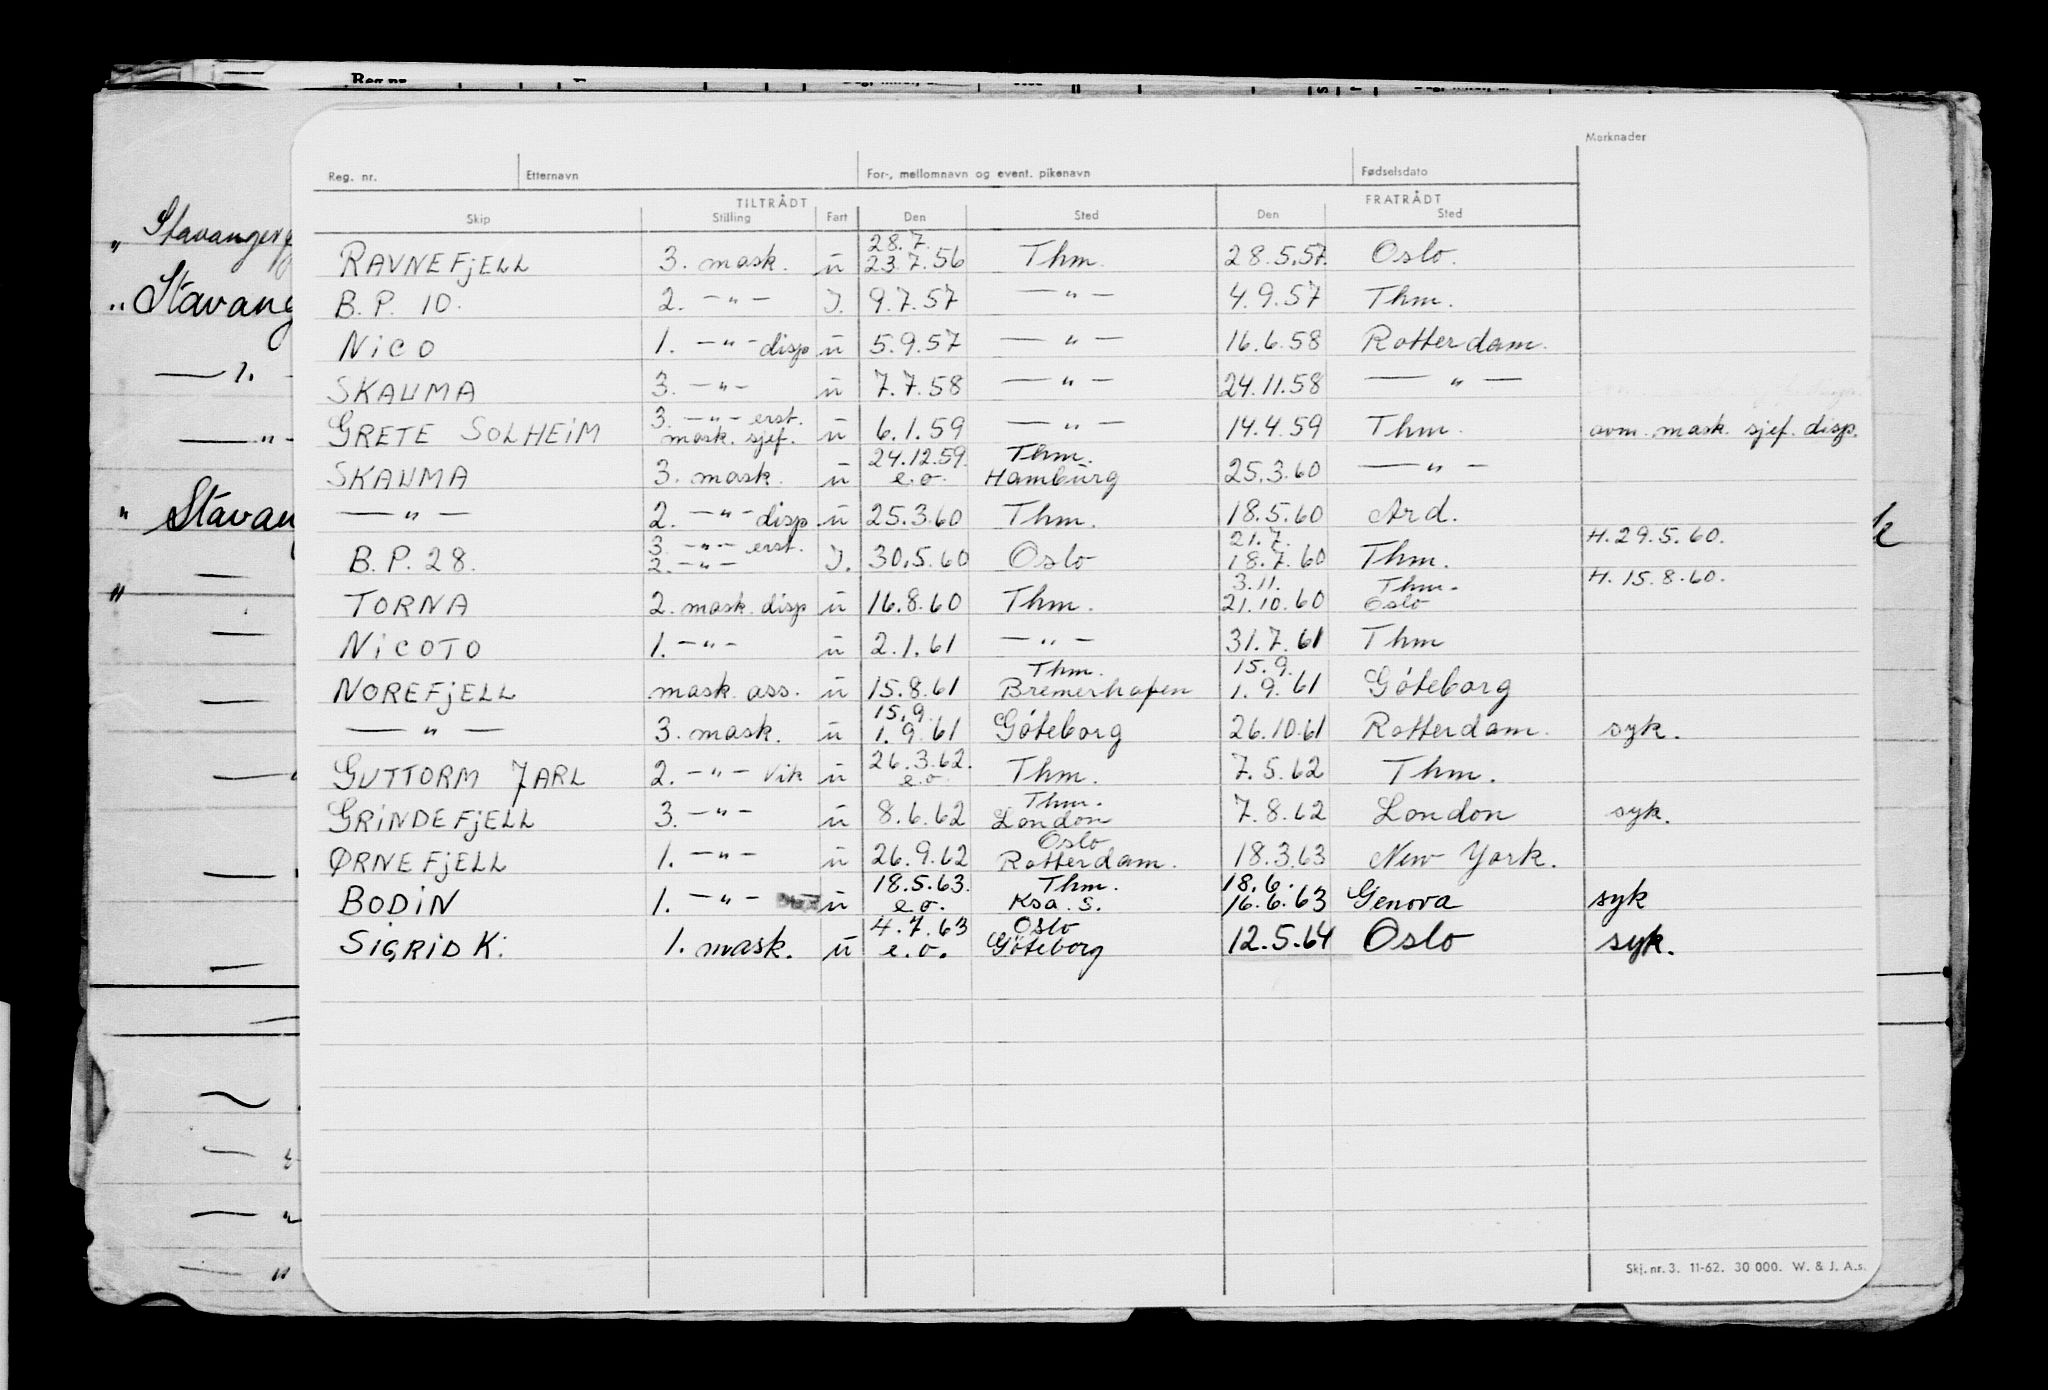 Merknader
Reg. nr. Etternavn For-, mellomnavn og event. pikenavn Fødselsdato
TILTRÅDT FRATRÅDT
Skip Stilling Fart Den Sted Den Sted
28.7.
RAVNEFJELL 3. mask. u 23.7.56 Thm. 28.5.57. Oslo.
B.P. 10. 2. —"— J. 9.7.57 —"— 4.9.57 Thm.
NICO 1. —"— disp u 5.9.57 —"— 16.6.58 Rotterdam.
SKAUMA 3. —"— u 7.7.58 —"— 24.11.58 —"—
3. —"— erst.
GRETE SOLHEIM mask. sjef. u 6.1.59 —"— 14.4.59 Thm. avm. mask. sjef. disp.
24.12.59. Thm.
SKAUMA 3. mask. u e.o. Hamburg 25.3.60 —"—
—"— 2. —"— disp u 25.3.60 Thm. 18.5.60 Ard.
3. —"— erst. 21.7. H. 29.5.60.
B.P. 28. 2. —"— J. 30.5.60 Oslo 18.7.60 Thm.
3.11. Thm. H. 15.8.60.
TORNA 2. mask. disp u 16.8.60 Thm. 21.10.60 Oslo
NICOTO 1. —"— u 2.1.61 —"— 31.7.61 Thm
Thm. 15.9.
NOREFJELL mask. ass. u 15.8.61 Bremerhafen 1.9.61 Göteborg
15.9.
—"— 3. mask. u 1.9.61 Göteborg 26.10.61 Rotterdam. syk.
26.3.62.
GUTTORM JARL 2. —"— Vik u e.o. Thm. 7.5.62 Thm.
Thm.
GRINDEFJELL 3. —"— u 8.6.62 London 7.8.62 London syk.
Oslo
ØRNEFJELL 1. —"— u 26.9.62 Rotterdam. 18.3.63 New York.
18.5.63. Thm. 18.6.
BODIN 1. —"— u e.o. Ksa. S. 16.6.63 Genova syk
4.7.63 Oslo
SIGRID K. 1. mask. u e.o. Göteborg 12.5.64 Oslo syk.
Skj. nr. 3. 11-62. 30 000. W. & J. A.s.